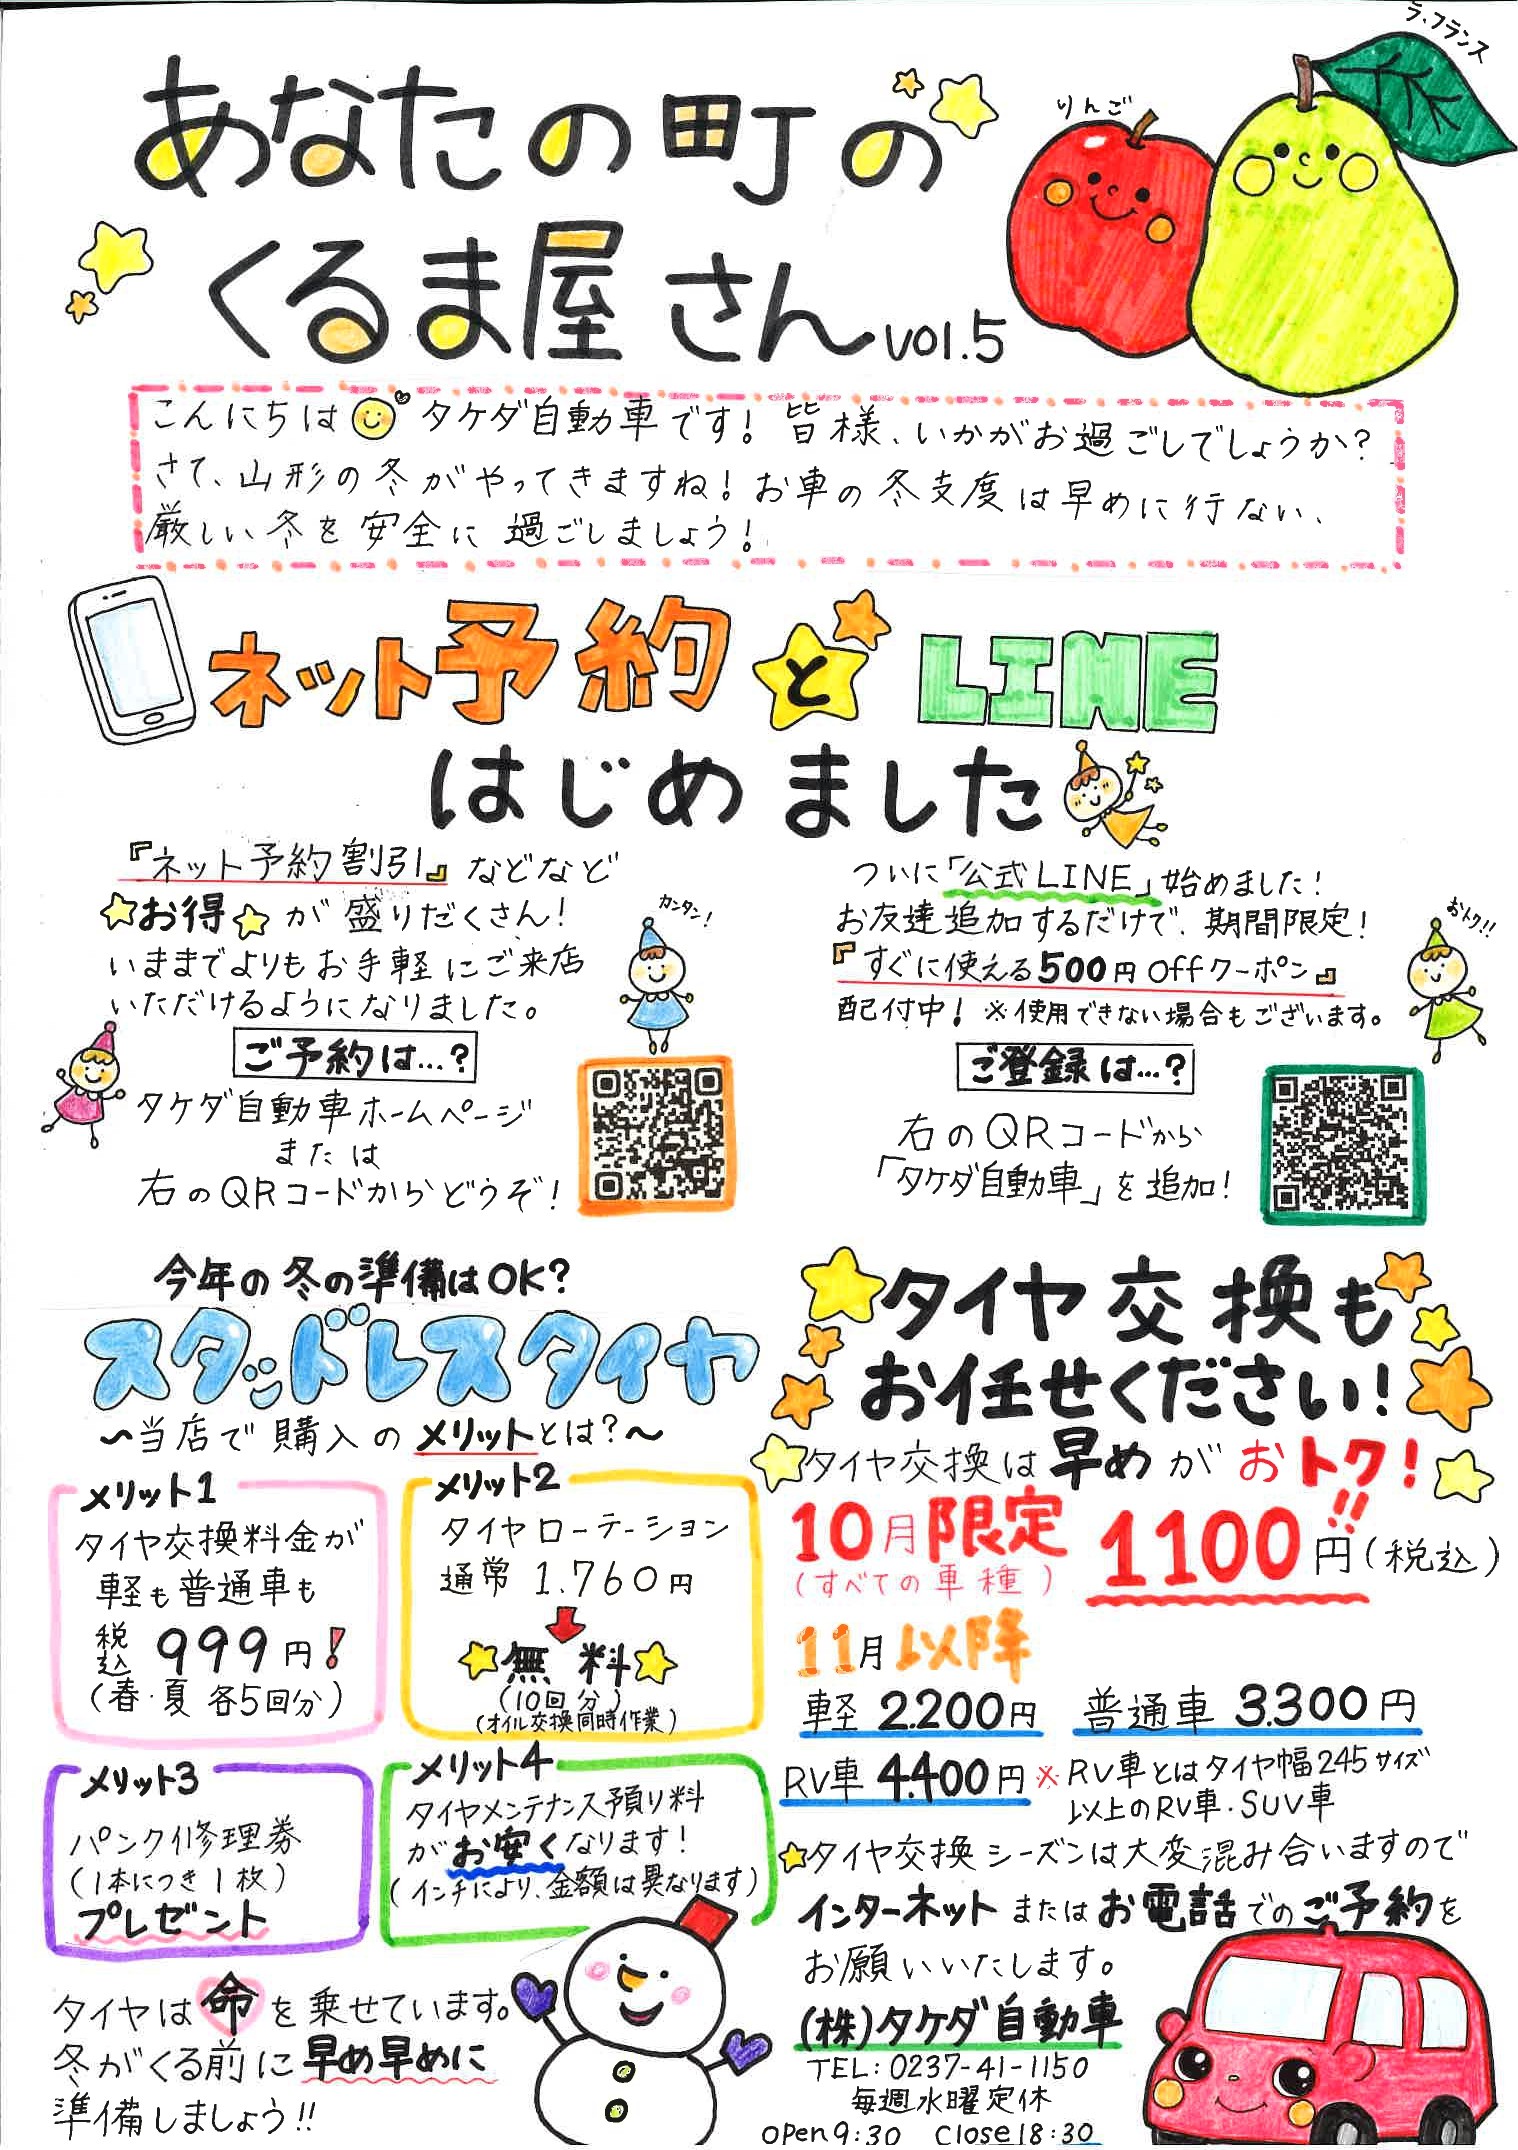 ラ・フランス
りんご
あなたの町の
くるま屋さん vol.5
こんにちは タケダ自動車です！皆様、いかがお過ごしでしょうか？
さて、山形の冬がやってきますね！お車の冬支度は早めに行ない、
厳しい冬を安全に過ごしましょう！
ネット予約とLINE
はじめました
『ネット予約割引』などなど
お得が盛りだくさん！
カンタン！
いままでよりもお手軽にご来店
いただけるようになりました。
ご予約は…？
タケダ自動車ホームページ
または
右のQRコードからどうぞ！
ついに「公式LINE」始めました！
お友達追加するだけで、期間限定！
おトク!!
『すぐに使える500円Offクーポン』
配付中！※使用できない場合もございます。
ご登録は…？
右のQRコードから
「タケダ自動車」を追加！
今年の冬の準備はOK？
スタッドレスタイヤ
〜当店で購入のメリットとは？〜
メリット1
タイヤ交換料金が
軽も普通車も
税込 999円！
（春・夏 各5回分）
メリット2
タイヤローテーション
通常 1.760円
無料
（10回分）
（オイル交換同時作業）
メリット3
パンク修理券
（1本につき1枚）
プレゼント
メリット4
タイヤメンテナンス預り料
がお安くなります！
（インチにより、金額は異なります）
タイヤは命を乗せています。
冬がくる前に早め早めに
準備しましょう!!
タイヤ交換も
お任せください！
タイヤ交換は早めがおトク！
10月限定 1100円!!（税込）
（すべての車種）
11月以降
軽 2.200円 普通車 3.300円
RV車 4.400円 ※RV車とはタイヤ幅245サイズ
以上のRV車・SUV車
タイヤ交換シーズンは大変混み合いますので
インターネットまたはお電話でのご予約を
お願いいたします。
(株)タケダ自動車
TEL:0237-41-1150
毎週水曜定休
open9:30 close18:30